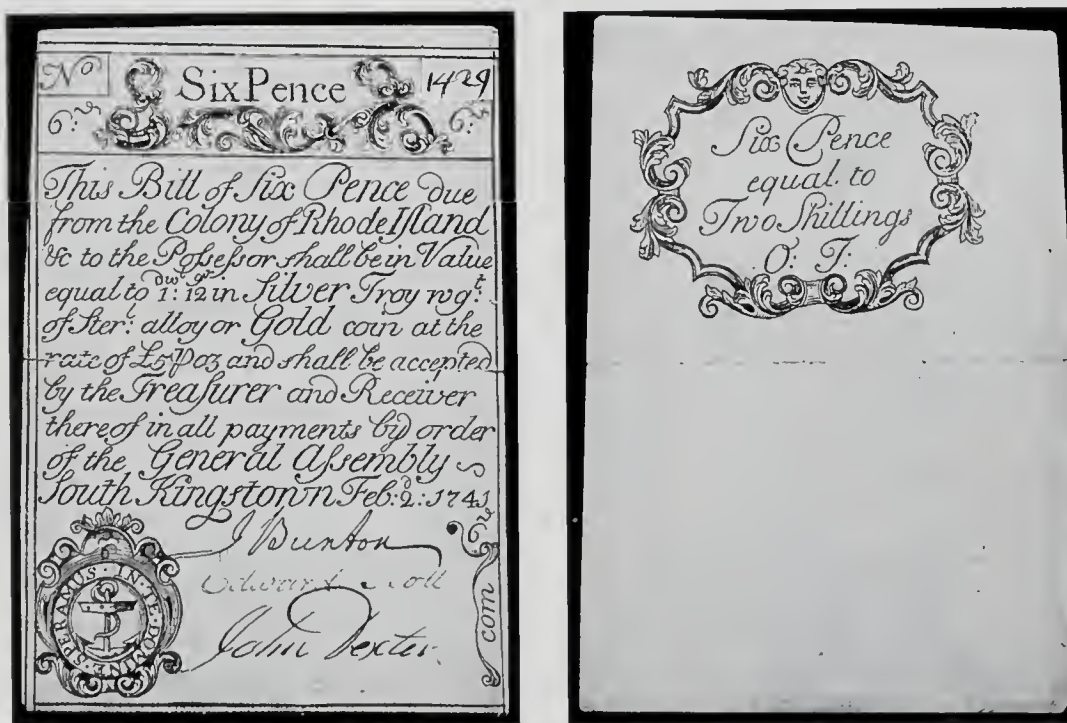 No
SixPence
1429
6:
6:
This Bill of Six Pence due
from the Colony of Rhode Iſland
&c to the Poſseſsor shall be in Value
equal to dwt 1: gr 12 in Silver Troy wgt:
of Ster: alloy or Gold coin at the
rate of £5 ⅌ oz and shall be accepted
by the Treaſurer and Receiver
thereof in all payments by order
of the General Aſsembly
South Kingstown Feb: 2d: 1741
J Bunton
Edward
John Dexter
SPERAMUS · IN · TE · DOMINE
com
Six Pence
equal to
Two Shillings
O: T: